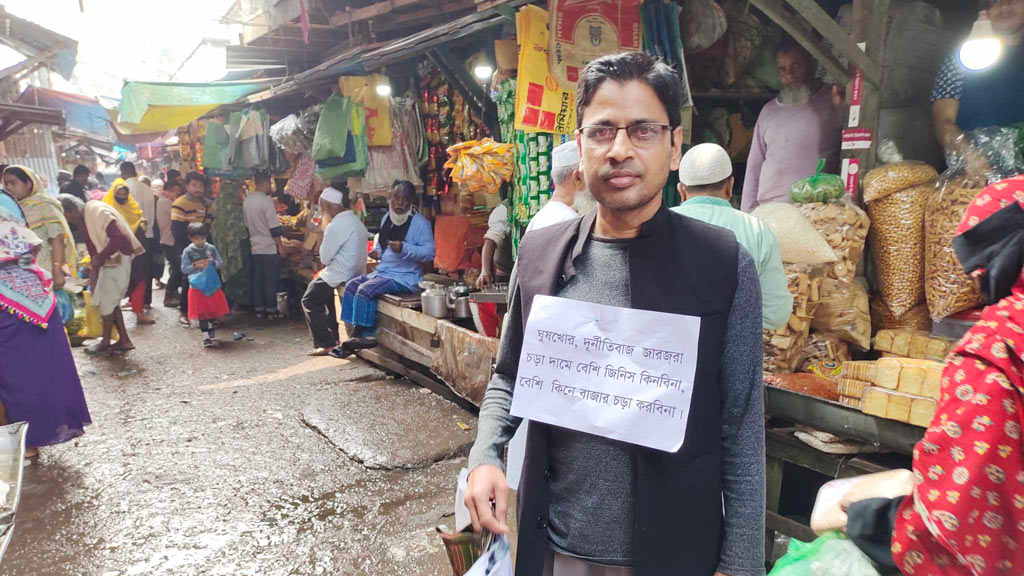 ঘুষখোর, দুর্নীতিবাজ জারজরা
চড়া দামে বেশি জিনিস কিনবিনা,
বেশি কিনে বাজার চড়া করবিনা।